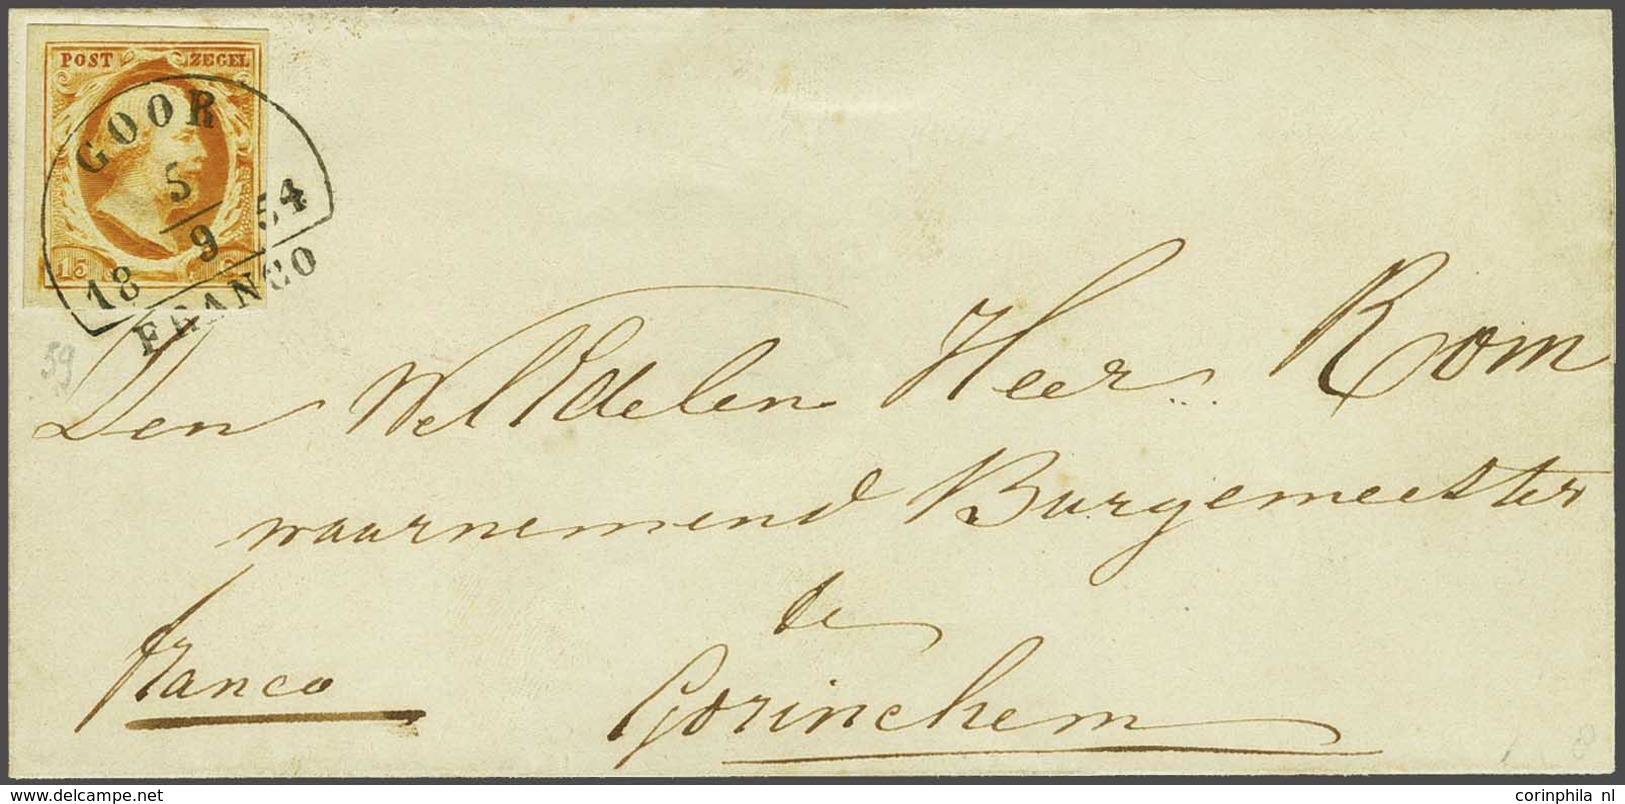 POST ZEGEL
GOOR
5
18 9 54
FRANCO
15
59
Den WelEdelen Heer Rom
waarnemend Burgemeester
te
Gorinchem
Franco
delcampe.net
corinphila nl